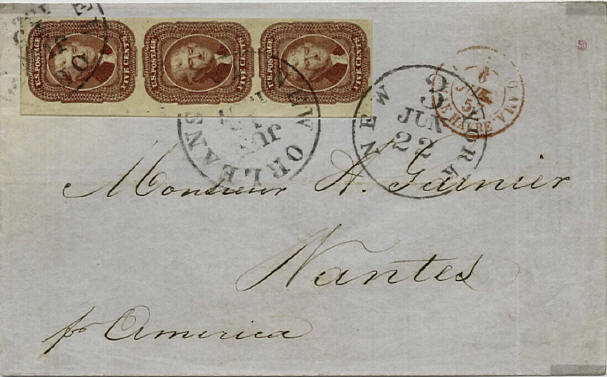 U.S. POSTAGE
FIVE CENTS
U.S. POSTAGE
FIVE CENTS
U.S. POSTAGE
FIVE CENTS
NEW ORLEANS
JUN
NEW YORK
3
JUN
22
Monsieur A. Garnier
Nantes
pr America